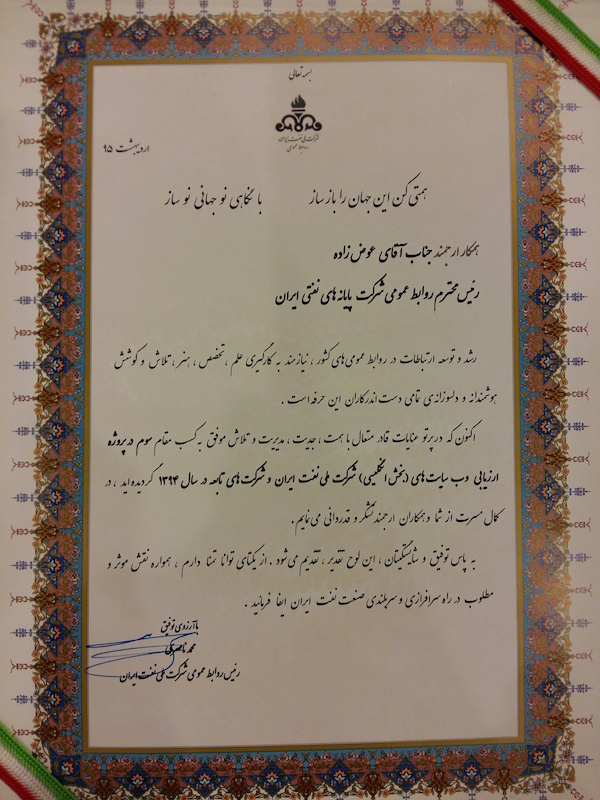 بسمه تعالی
شرکت ملی نفت ایران
روابط عمومی
اردیبهشت ۹۵
همتی کن این جهان را باز ساز با نگاهی نو جهانی نو ساز
همکار ارجمند جناب آقای عوض زاده
رئیس محترم روابط عمومی شرکت پایانه های نفتی ایران
رشد و توسعه ارتباطات در روابط عمومی های کشور ، نیازمند به کارگیری علم ، تخصص ، هنر ، تلاش و کوشش
هوشمندانه و دلسوزانه ی تمامی دست اندرکاران این حرفه است .
اکنون که در پرتو عنایات قادر متعال با همت ، جدیت ، مدیریت و تلاش موفق به کسب مقام سوم در پروژه
ارزیابی وب سایت های (بخش انگلیسی) شرکت ملی نفت ایران و شرکت های تابعه در سال ۱۳۹۴ گردیده اید ، در
کمال مسرت از شما و همکاران ارجمند تشکر و قدردانی می نمایم .
به پاس توفیق و شایستگیتان ، این لوح تقدیر ، تقدیم می شود . از یکتای توانا تمنا دارم ، همواره نقش موثر و
مطلوب در راه سرافرازی و سربلندی صنعت نفت ایران ایفا فرمائید .
با آرزوی توفیق
محمد ناصری
رئیس روابط عمومی شرکت ملی نفت ایران